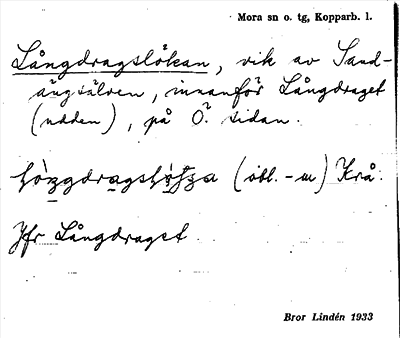 Mora sn o. tg, Kopparb. l.
Långdragslökan, vik av Sand-
ängsälven, innanför Långdraget
(udden), på Ö. sidan.
(obl. -m) Krå.
Jfr Långdraget
Bror Lindén 1933